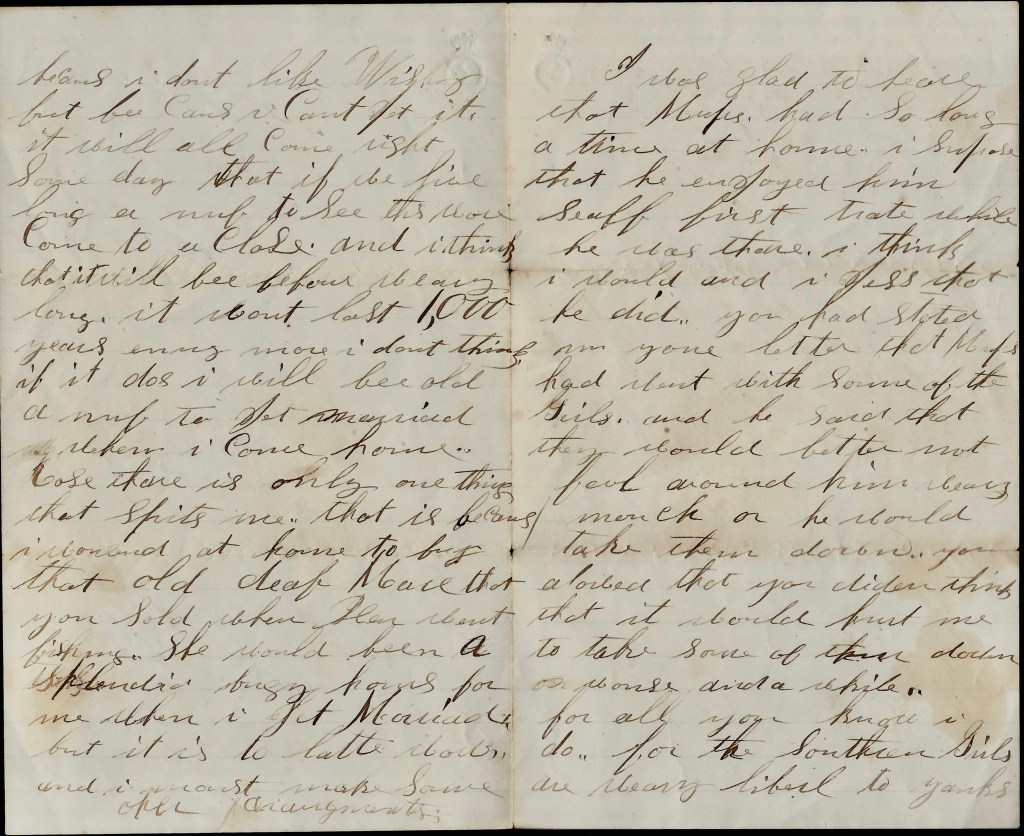 becaus i dont like Wisky
but bee Caus i Cant get it.
it will all Come right
Some day that if we live
long a nuf to See this wore
Come to a Close. and i think
that it will bee before weary
long. it wont last 1,000
years enny more i dont think
if it dos i will bee old
a nuf to get married
when i Come home..
thare is only one thing
that Spits me.. that is becaus
i worend at home to buy
that old deaf Mare that
you Sold when Plen went
fishing. She would been a
splendid bugy hors for
me when i get Married.
but it is to latte
and i moust make Some
other arraingments.
I was glad to heare
that Mups. had So long
a time at home. i Supose
that he enjoyed him
Sealf first rate while
he was thare. i think
i would and i gess that
he did.. you had Stated
in youre letter that Mups
had went with Somme of the
Girls. and he Said that
they would better not
fool around him weary
mouch or he would
take them down.. you
alowed that you diden think
that it would hurt me
to take Some of them down
onse and a while..
for all you know i
do.. for the Southern Girls
are weary liberl to yanks